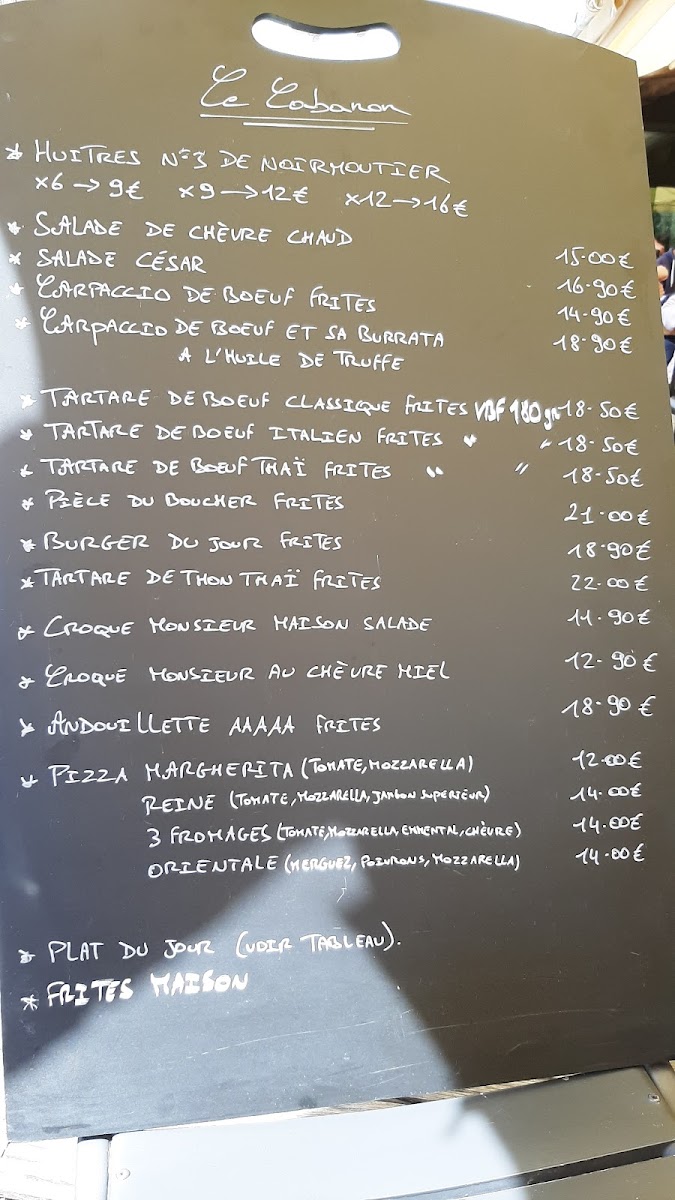 Le Cabanon
* HUITRES N°3 DE NOIRMOUTIER
x6 → 9€ x9 → 12€ x12 → 16€
* SALADE DE CHÈVRE CHAUD 15.00€
* SALADE CÉSAR 16.90€
* CARPACCIO DE BOEUF FRITES 14.90€
* CARPACCIO DE BOEUF ET SA BURRATA 18.90€
A L'HUILE DE TRUFFE
* TARTARE DE BOEUF CLASSIQUE FRITES VBF 180gr 18.50€
* TARTARE DE BOEUF ITALIEN FRITES " " 18.50€
* TARTARE DE BOEUF THAÏ FRITES " " 18.50€
* PIÈCE DU BOUCHER FRITES 21.00€
* BURGER DU JOUR FRITES 18.90€
* TARTARE DE THON THAÏ FRITES 22.00€
* CROQUE MONSIEUR MAISON SALADE 11.90€
* CROQUE MONSIEUR AU CHÈVRE MIEL 12.90€
* ANDOUILLETTE AAAAA FRITES 18.90€
* PIZZA MARGHERITA (TOMATE, MOZZARELLA) 12.00€
REINE (TOMATE, MOZZARELLA, JAMBON SUPERIEUR) 14.00€
3 FROMAGES (TOMATE, MOZZARELLA, EMMENTAL, CHÈVRE) 14.00€
ORIENTALE (MERGUEZ, POIVRONS, MOZZARELLA) 14.00€
* PLAT DU JOUR (VOIR TABLEAU).
* FRITES MAISON